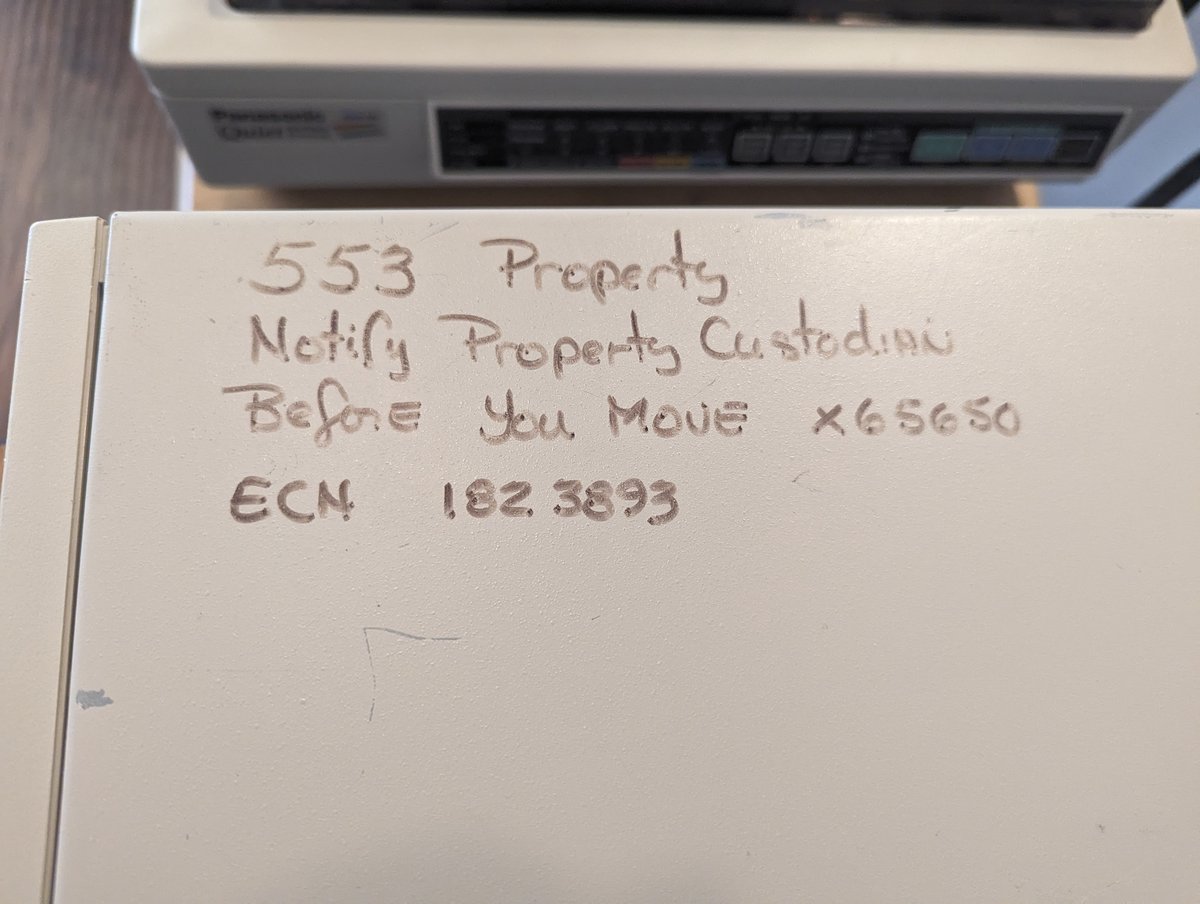 Panasonic
Quiet
553 Property
Notify Property Custodian
Before You Move x65650
ECN 1823893